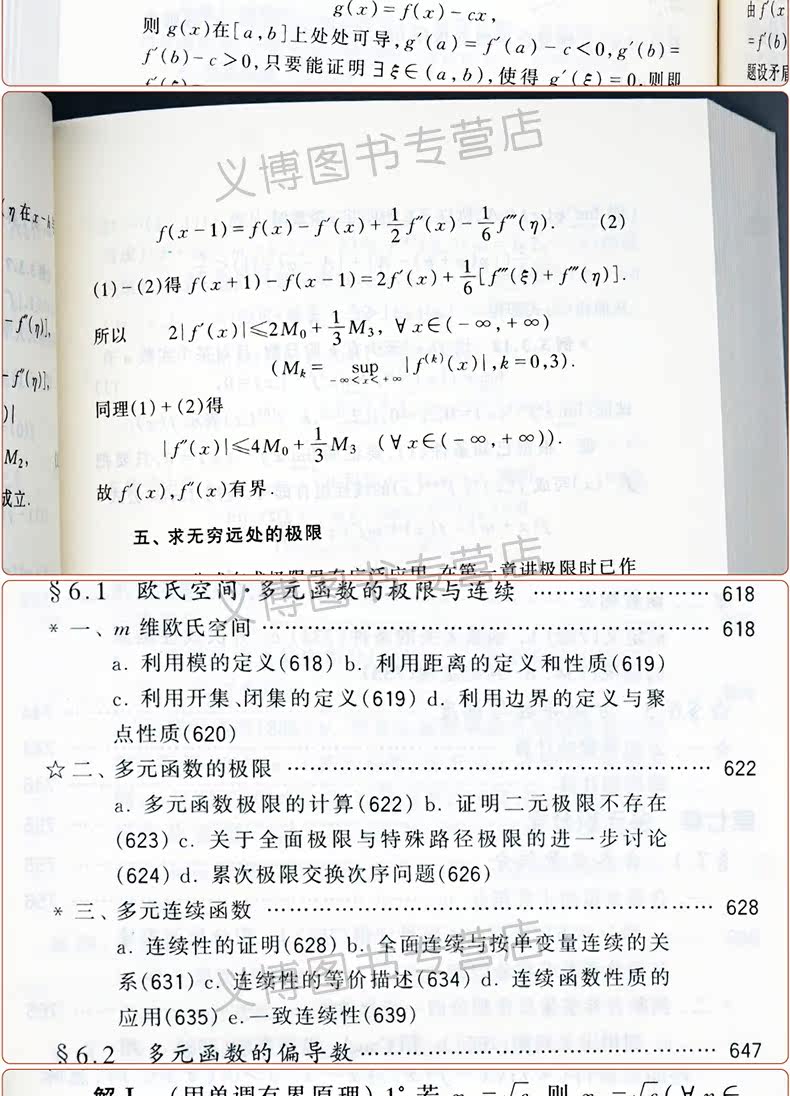 g(x)=f(x)-cx,
则 g(x)在[a,b]上处处可导,g′(a)=f′(a)-c<0,g′(b)=
f′(b)-c>0,只要能证明∃ξ∈(a,b),使得 g′(ξ)=0,则即
由f′(x
=f′(b)
题设矛盾
义博图书专营店
η在x-
f(x-1)=f(x)-f′(x)+1/2 f″(x)-1/6 f‴(η). (2)
(1)-(2)得 f(x+1)-f(x-1)=2f′(x)+1/6[f‴(ξ)+f‴(η)].
-f″(η)],
所以 2|f′(x)|≤2M₀+1/3 M₃, ∀x∈(-∞,+∞)
(Mₖ= sup -∞<x<+∞ |f⁽ᵏ⁾(x)|,k=0,3).
-f″(η)],
同理(1)+(2)得
)|
|f″(x)|≤4M₀+1/3 M₃ (∀x∈(-∞,+∞)).
M₂,
故 f′(x),f″(x)有界.
成立.
五、求无穷远处的极限
义博图书专营店
§6.1 欧氏空间·多元函数的极限与连续 …… 618
* 一、m 维欧氏空间 …… 618
a. 利用模的定义(618) b. 利用距离的定义和性质(619)
c. 利用开集、闭集的定义(619) d. 利用边界的定义与聚
点性质(620)
☆ 二、多元函数的极限 …… 622
a. 多元函数极限的计算(622) b. 证明二元极限不存在
(623) c. 关于全面极限与特殊路径极限的进一步讨论
(624) d. 累次极限交换次序问题(626)
* 三、多元连续函数 …… 628
a. 连续性的证明(628) b. 全面连续与按单变量连续的关
系(631) c. 连续性的等价描述(634) d. 连续函数性质的
义博图书专营店
应用(635) e. 一致连续性(639)
§6.2 多元函数的偏导数 …… 647